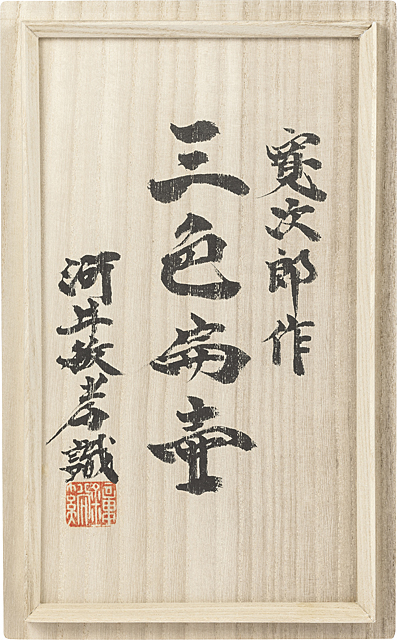 寛次郎作
三色扁壷
河井敏孝識